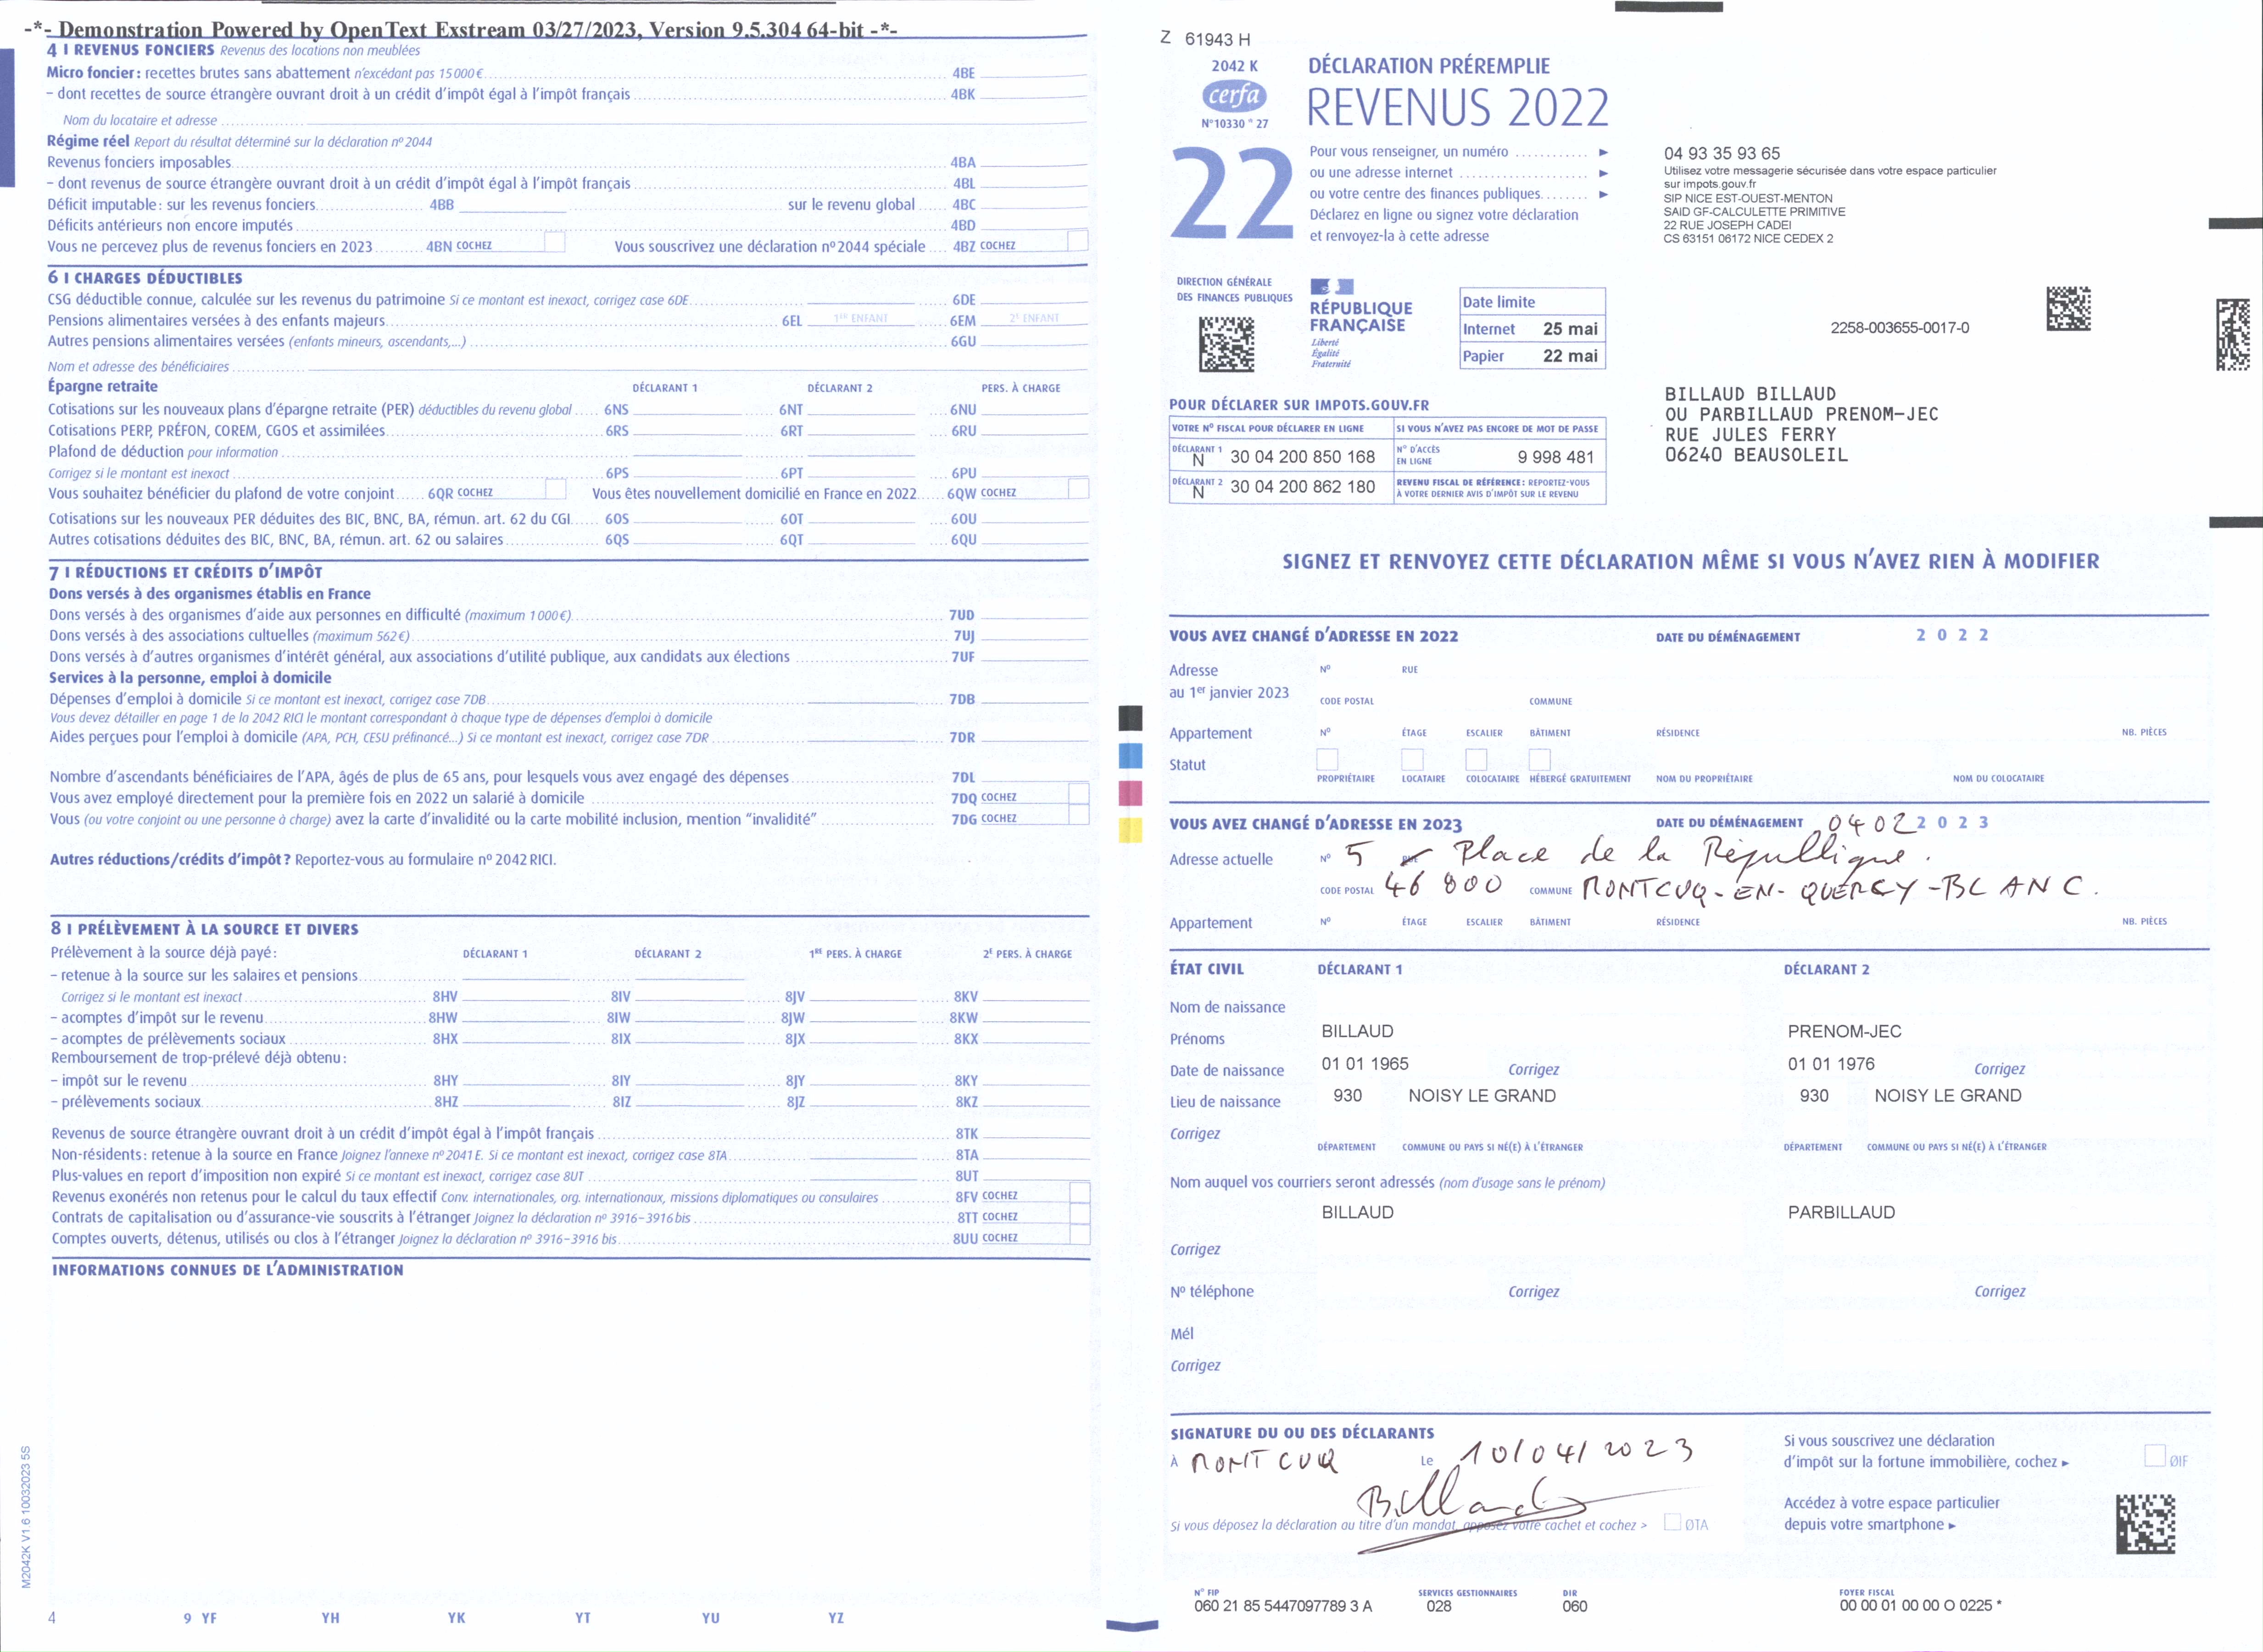 -*- Demonstration Powered by OpenText Exstream 03/27/2023, Version 9.5.304 64-bit -*-
4 I REVENUS FONCIERS Revenus des locations non meublées
Micro foncier : recettes brutes sans abattement n'excédant pas 15 000 € 4BE
– dont recettes de source étrangère ouvrant droit à un crédit d'impôt égal à l'impôt français 4BK
Nom du locataire et adresse
Régime réel Report du résultat déterminé sur la déclaration nº 2044
Revenus fonciers imposables 4BA
– dont revenus de source étrangère ouvrant droit à un crédit d'impôt égal à l'impôt français 4BL
Déficit imputable : sur les revenus fonciers 4BB sur le revenu global 4BC
Déficits antérieurs non encore imputés 4BD
Vous ne percevez plus de revenus fonciers en 2023 4BN COCHEZ Vous souscrivez une déclaration nº 2044 spéciale 4BZ COCHEZ
6 I CHARGES DÉDUCTIBLES
CSG déductible connue, calculée sur les revenus du patrimoine Si ce montant est inexact, corrigez case 6DE 6DE
Pensions alimentaires versées à des enfants majeurs 6EL 1ER ENFANT 6EM 2E ENFANT
Autres pensions alimentaires versées (enfants mineurs, ascendants,...) 6GU
Nom et adresse des bénéficiaires
Épargne retraite DÉCLARANT 1 DÉCLARANT 2 PERS. À CHARGE
Cotisations sur les nouveaux plans d'épargne retraite (PER) déductibles du revenu global 6NS 6NT 6NU
Cotisations PERP, PRÉFON, COREM, CGOS et assimilées 6RS 6RT 6RU
Plafond de déduction pour information
Corrigez si le montant est inexact 6PS 6PT 6PU
Vous souhaitez bénéficier du plafond de votre conjoint 6QR COCHEZ Vous êtes nouvellement domicilié en France en 2022 6QW COCHEZ
Cotisations sur les nouveaux PER déduites des BIC, BNC, BA, rémun. art. 62 du CGI 6OS 6OT 6OU
Autres cotisations déduites des BIC, BNC, BA, rémun. art. 62 ou salaires 6QS 6QT 6QU
7 I RÉDUCTIONS ET CRÉDITS D'IMPÔT
Dons versés à des organismes établis en France
Dons versés à des organismes d'aide aux personnes en difficulté (maximum 1 000 €) 7UD
Dons versés à des associations cultuelles (maximum 562 €) 7UJ
Dons versés à d'autres organismes d'intérêt général, aux associations d'utilité publique, aux candidats aux élections 7UF
Services à la personne, emploi à domicile
Dépenses d'emploi à domicile Si ce montant est inexact, corrigez case 7DB 7DB
Vous devez détailler en page 1 de la 2042 RICI le montant correspondant à chaque type de dépenses d'emploi à domicile
Aides perçues pour l'emploi à domicile (APA, PCH, CESU préfinancé...) Si ce montant est inexact, corrigez case 7DR 7DR
Nombre d'ascendants bénéficiaires de l'APA, âgés de plus de 65 ans, pour lesquels vous avez engagé des dépenses 7DL
Vous avez employé directement pour la première fois en 2022 un salarié à domicile 7DQ COCHEZ
Vous (ou votre conjoint ou une personne à charge) avez la carte d'invalidité ou la carte mobilité inclusion, mention "invalidité" 7DG COCHEZ
Autres réductions/crédits d'impôt ? Reportez-vous au formulaire nº 2042 RICI.
8 I PRÉLÈVEMENT À LA SOURCE ET DIVERS
Prélèvement à la source déjà payé : DÉCLARANT 1 DÉCLARANT 2 1RE PERS. À CHARGE 2E PERS. À CHARGE
– retenue à la source sur les salaires et pensions
Corrigez si le montant est inexact 8HV 8IV 8JV 8KV
– acomptes d'impôt sur le revenu 8HW 8IW 8JW 8KW
– acomptes de prélèvements sociaux 8HX 8IX 8JX 8KX
Remboursement de trop-prélevé déjà obtenu :
– impôt sur le revenu 8HY 8IY 8JY 8KY
– prélèvements sociaux 8HZ 8IZ 8JZ 8KZ
Revenus de source étrangère ouvrant droit à un crédit d'impôt égal à l'impôt français 8TK
Non-résidents : retenue à la source en France Joignez l'annexe nº 2041 E. Si ce montant est inexact, corrigez case 8TA 8TA
Plus-values en report d'imposition non expiré Si ce montant est inexact, corrigez case 8UT 8UT
Revenus exonérés non retenus pour le calcul du taux effectif Conv. internationales, org. internationaux, missions diplomatiques ou consulaires 8FV COCHEZ
Contrats de capitalisation ou d'assurance-vie souscrits à l'étranger Joignez la déclaration nº 3916–3916 bis 8TT COCHEZ
Comptes ouverts, détenus, utilisés ou clos à l'étranger Joignez la déclaration nº 3916–3916 bis 8UU COCHEZ
INFORMATIONS CONNUES DE L'ADMINISTRATION
M2042K V1.6 10032023 5S
4 9 YF YH YK YT YU YZ
Z 61943 H
2042 K
cerfa
N°10330 * 27
DÉCLARATION PRÉREMPLIE
REVENUS 2022
22
Pour vous renseigner, un numéro
ou une adresse internet
ou votre centre des finances publiques
Déclarez en ligne ou signez votre déclaration
et renvoyez-la à cette adresse
04 93 35 93 65
Utilisez votre messagerie sécurisée dans votre espace particulier
sur impots.gouv.fr
SIP NICE EST-OUEST-MENTON
SAID GF-CALCULETTE PRIMITIVE
22 RUE JOSEPH CADEI
CS 63151 06172 NICE CEDEX 2
DIRECTION GÉNÉRALE
DES FINANCES PUBLIQUES
RÉPUBLIQUE
FRANÇAISE
Liberté
Égalité
Fraternité
Date limite
Internet 25 mai
Papier 22 mai
2258-003655-0017-0
BILLAUD BILLAUD
OU PARBILLAUD PRENOM-JEC
RUE JULES FERRY
06240 BEAUSOLEIL
POUR DÉCLARER SUR IMPOTS.GOUV.FR
VOTRE Nº FISCAL POUR DÉCLARER EN LIGNE SI VOUS N'AVEZ PAS ENCORE DE MOT DE PASSE
DÉCLARANT 1 N 30 04 200 850 168 Nº D'ACCÈS EN LIGNE 9 998 481
DÉCLARANT 2 N 30 04 200 862 180 REVENU FISCAL DE RÉFÉRENCE : REPORTEZ-VOUS
À VOTRE DERNIER AVIS D'IMPÔT SUR LE REVENU
SIGNEZ ET RENVOYEZ CETTE DÉCLARATION MÊME SI VOUS N'AVEZ RIEN À MODIFIER
VOUS AVEZ CHANGÉ D'ADRESSE EN 2022 DATE DU DÉMÉNAGEMENT 2 0 2 2
Adresse Nº RUE
au 1er janvier 2023
CODE POSTAL COMMUNE
Appartement Nº ÉTAGE ESCALIER BÂTIMENT RÉSIDENCE NB. PIÈCES
Statut
PROPRIÉTAIRE LOCATAIRE COLOCATAIRE HÉBERGÉ GRATUITEMENT NOM DU PROPRIÉTAIRE NOM DU COLOCATAIRE
VOUS AVEZ CHANGÉ D'ADRESSE EN 2023 DATE DU DÉMÉNAGEMENT 0402 2 0 2 3
Adresse actuelle Nº 5 Place de la République.
CODE POSTAL 46 800 COMMUNE MONTCUQ-EN-QUERCY-BLANC.
Appartement Nº ÉTAGE ESCALIER BÂTIMENT RÉSIDENCE NB. PIÈCES
ÉTAT CIVIL DÉCLARANT 1 DÉCLARANT 2
Nom de naissance
Prénoms BILLAUD PRENOM-JEC
Date de naissance 01 01 1965 Corrigez 01 01 1976 Corrigez
Lieu de naissance 930 NOISY LE GRAND 930 NOISY LE GRAND
Corrigez
DÉPARTEMENT COMMUNE OU PAYS SI NÉ(E) À L'ÉTRANGER DÉPARTEMENT COMMUNE OU PAYS SI NÉ(E) À L'ÉTRANGER
Nom auquel vos courriers seront adressés (nom d'usage sans le prénom)
BILLAUD PARBILLAUD
Corrigez
Nº téléphone Corrigez Corrigez
Mél
Corrigez
SIGNATURE DU OU DES DÉCLARANTS
À MONTCUQ Le 10/04/2023
Billaud
Si vous déposez la déclaration au titre d'un mandat, apposez votre cachet et cochez > ØTA
Si vous souscrivez une déclaration
d'impôt sur la fortune immobilière, cochez ØIF
Accédez à votre espace particulier
depuis votre smartphone
N° FIP SERVICES GESTIONNAIRES DIR FOYER FISCAL
060 21 85 5447097789 3 A 028 060 00 00 01 00 00 O 0225 *